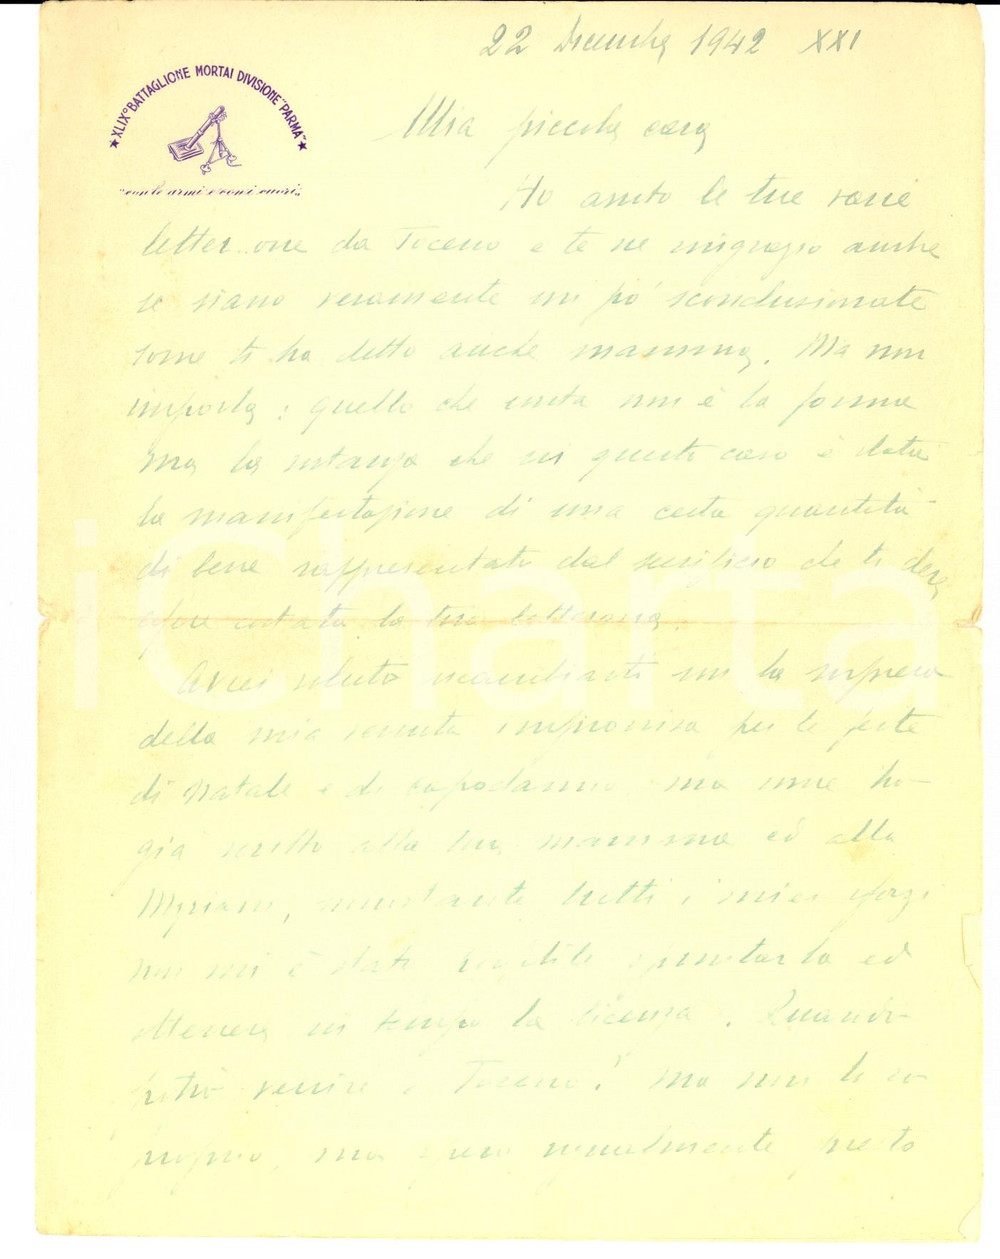 22 Dicembre 1942 XXI
★ XLIX° BATTAGLIONE MORTAI DIVISIONE "PARMA" ★
"con le armi e con i cuori"
Mia piccola cara
Ho avuto le tue varie
letter..one da Toceno e te ne ringrazio anche
se siano veramente un po' sconclusionate
come ti ha detto anche mamma. Ma non
importa: quello che conta non è la forma
ma la sostanza che in questo caso è data
la manifestazione di una certa quantità
di bene rappresentato dal sacrificio che ti deve
costata la tua letterona.
Avrei voluto mandarti la sorpresa
della mia venuta improvvisa per le feste
di Natale e di capodanno ma come ho
già scritto alla tua mamma ed alla
Myriam, nonostante tutti i miei sforzi
non mi è stato possibile spuntarla ed
ottenere in tempo la licenza. Quando
potrò venire a Toceno? ma non lo so
proprio, ma spero ugualmente presto
iCharta